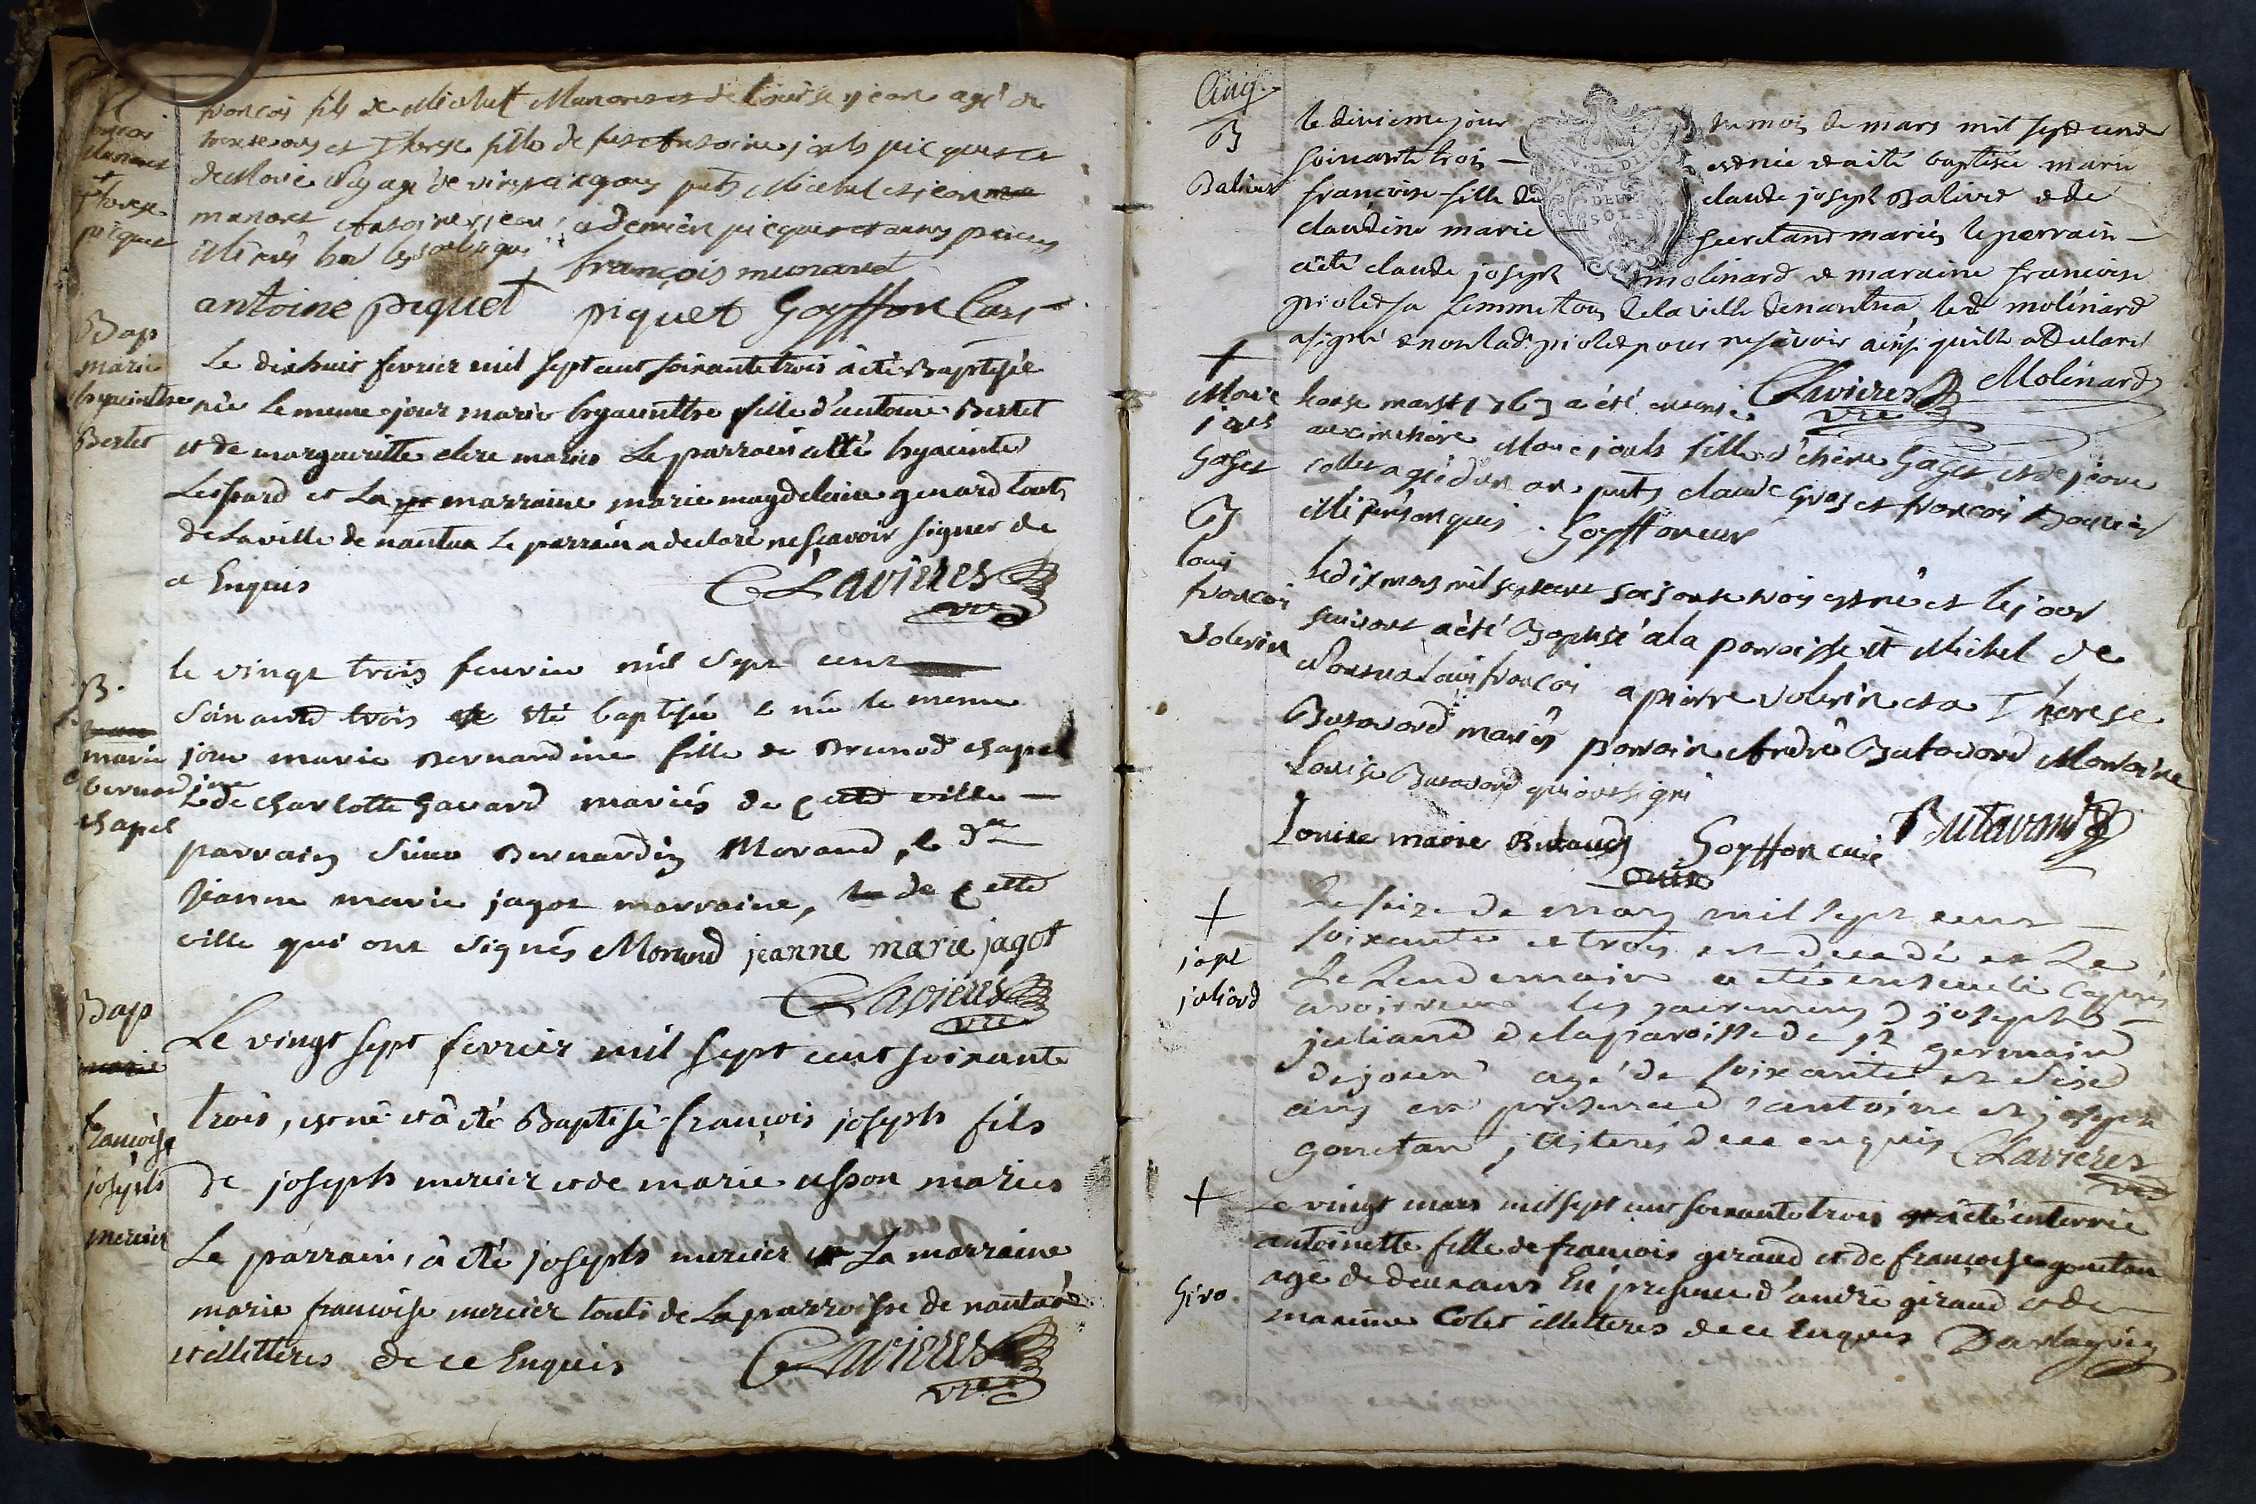 françois fils de Michel Munaret et de Louise jean agé de
trente ans et Therese fille de feu Antoine joseph picquet et
de Marie agé de vingt cinq ans pnts Michel et jean
munaret Antoine et jean picquet
antoine piquet françois munaret
piquet Goyffon Curé
Bap
marie
hyacinthe
Bertet
Le dixhuit fevrier mil sept cent soixante trois à été Baptisée
née le meme jour marie hyacinthe fille d'antoine Bertet
et de margueritte clere mariés Le parrain a été hyacinte
Leissard et La marraine marie magdelaine genard touts
de La ville de nantua Le parrain a declaré ne sçavoir signer de
ce Enquis CLavieres
vre
B.
marie
bernardine
chapel
le vingt trois fevrier mil sept cent
soixante trois été baptisée e née le meme
jour marie Bernardine fille de Brunod chapel
& de charlotte Gavard mariés de cette ville
parrain sieur Bernardin Morand, e dlle
Jeanne marie jagot marraine, de cette
ville qui ont signés Morand jeanne marie jagot
CLavieres
vre
Bap
françoise
joseph
mercier
Le vingt sept fevrier mil sept cent soixante
trois, est né et à été Baptisé françois joseph fils
de joseph mercier et de marie usson mariés
Le parrain, à été joseph mercier et La marraine
marie francoise mercier touts de La parroisse de nantua
et illetterés de ce Enquis CLavieres
vre
B
Balivet
le dixieme jour du mois de mars mil sept cent
soixante trois est née et a été baptisée marie
francoise fille de claude joseph Balivet & de
claudine marie mariés le parrain
a été claude joseph molinard & maraine francoise
piolet sa femme tous de la ville de nantua led molinard
a signé & non lad. piolet pour ne sçavoir ainsi quill a declaré
CLavieres Molinard
vre
+
Marie
jaqs
Gaget
mars 1763 a été enterré
au cimetiere Marie joseph fille d'etiene Gaget et de jeane
collet agé d'un an pnts claude Gros et françois
illiterés enquis. Goyffon curé
B
Louis
françois
Volerin
le dix mars mil sept cent soisante trois est né et le jour
suivant a été Baptisé a la parroisse st Michel de
Nantua Louis françois a pierre Volerin et a Therese
Butavard mariés parrain André Butavard Marraine
Louise Butavard qui ont signé
Louise marie Butavard Goyffon curé Butavand
+
jope
juliard
Le seize de mars mil sept cent
soixante et trois est decedé et Le
Le Lendemain a été enseveli apres
avoir receu les sacremens joseph
juliand de la paroisse de st germain
de joux agé de soixante et seize
ans en presence d'antoine et joseph
gonetan, illiterés de ce enquis CLavieres
vre
+
Giro.
Le vingt mars mil sept cent soixante trois à été enterrée
antoinette fille de françois geraud et de francoise gonetan
agé de deux ans En presence d'andré giraud et de
maxime Colet illetteres de ce Enquis